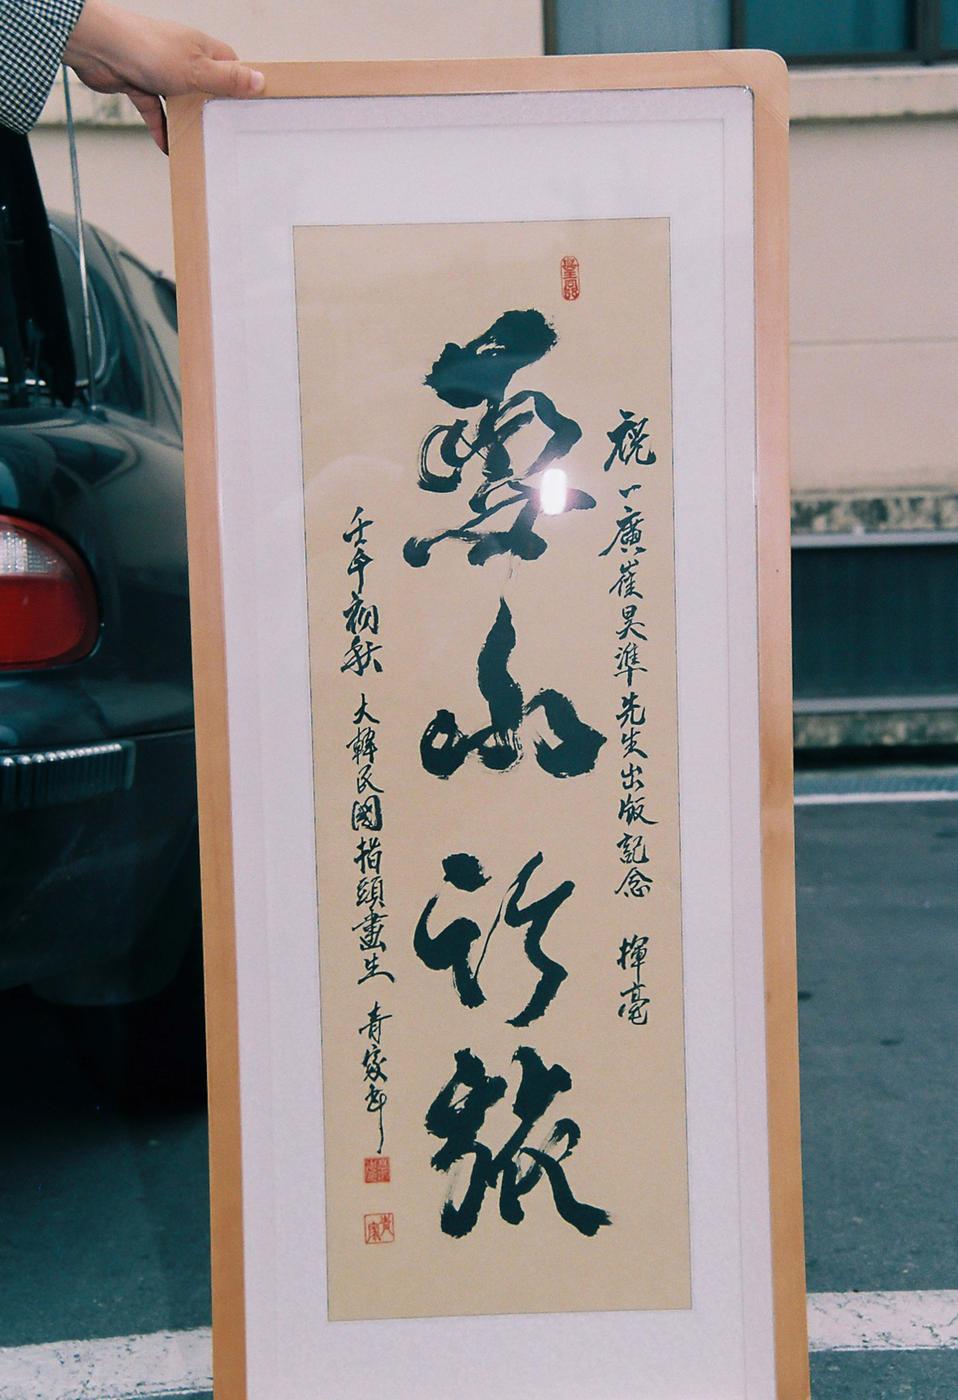 祝 一廣崔昊準先生出版記念 揮毫
靈山行旅
壬午初秋 大韓民國指頭畫生 青家